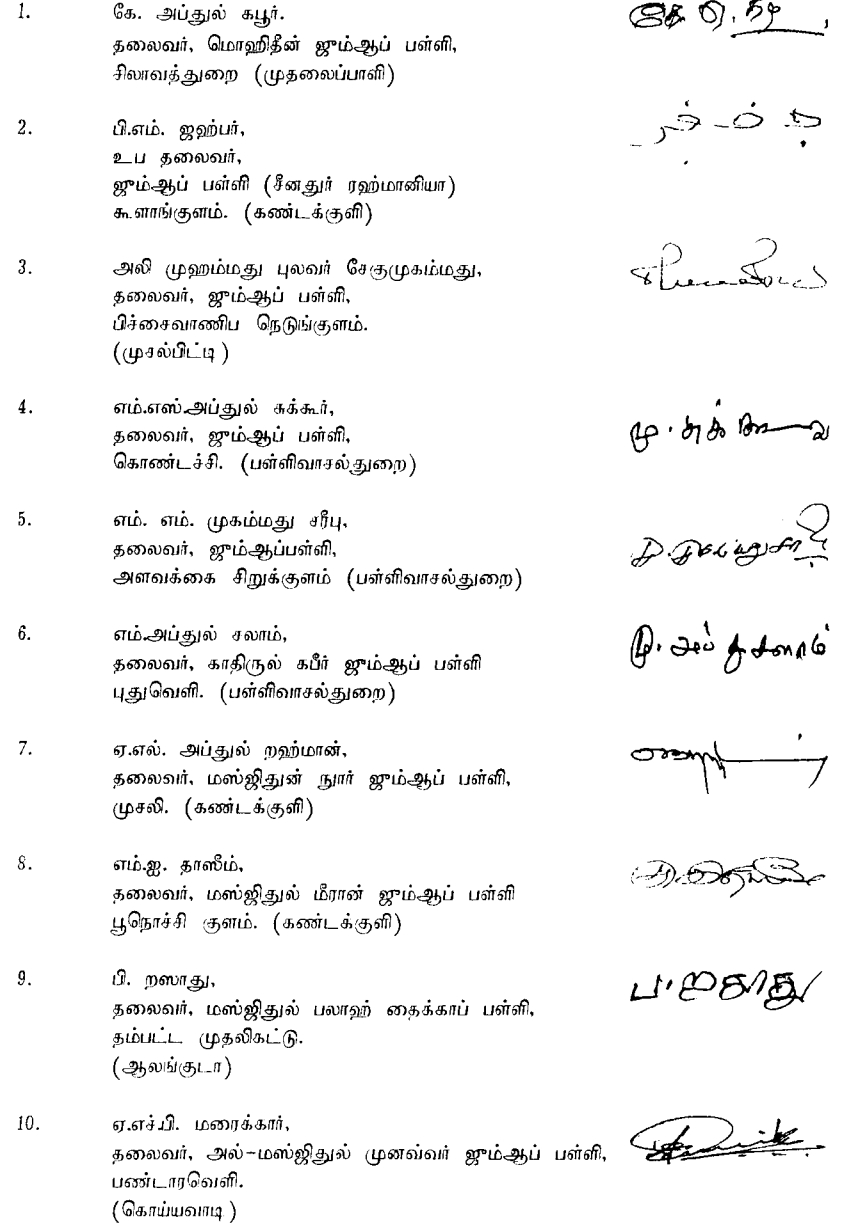 1. கே. அப்துல் கபூர்.
தலைவர், மொஹிதீன் ஜும்ஆப் பள்ளி,
சிலாவத்துறை (முதலைப்பாளி)
2. பி.எம். ஜஹ்பர்,
உப தலைவர்,
ஜும்ஆப் பள்ளி (சீனதுர் ரஹ்மானியா)
கூளாங்குளம். (கண்டக்குளி)
3. அலி முஹம்மது புலவர் சேகுமுகம்மது,
தலைவர், ஜும்ஆப் பள்ளி,
பிச்சைவாணிப நெடுங்குளம்.
(முசல்பிட்டி)
4. எம்.எஸ்.அப்துல் சுக்கூர்,
தலைவர், ஜும்ஆப் பள்ளி,
கொண்டச்சி. (பள்ளிவாசல்துறை)
5. எம். எம். முகம்மது சரீபு,
தலைவர், ஜும்ஆப்பள்ளி,
அளவக்கை சிறுக்குளம் (பள்ளிவாசல்துறை)
6. எம்.அப்துல் சலாம்,
தலைவர், காதிருல் கபீர் ஜும்ஆப் பள்ளி
புதுவெளி. (பள்ளிவாசல்துறை)
7. ஏ.எல். அப்துல் றஹ்மான்,
தலைவர், மஸ்ஜிதுன் நுார் ஜும்ஆப் பள்ளி,
முசலி. (கண்டக்குளி)
8. எம்.ஐ. தாஸீம்,
தலைவர், மஸ்ஜிதுல் மீரான் ஜும்ஆப் பள்ளி
பூநொச்சி குளம். (கண்டக்குளி)
9. பி. றஸாது, ப. றசாது
தலைவர், மஸ்ஜிதுல் பலாஹ் தைக்காப் பள்ளி,
தம்பட்ட முதலிகட்டு.
(ஆலங்குடா)
10. ஏ.எச்.பி. மரைக்கார்,
தலைவர், அல்-மஸ்ஜிதுல் முனவ்வர் ஜும்ஆப் பள்ளி,
பண்டாரவெளி.
(கொய்யவாடி)